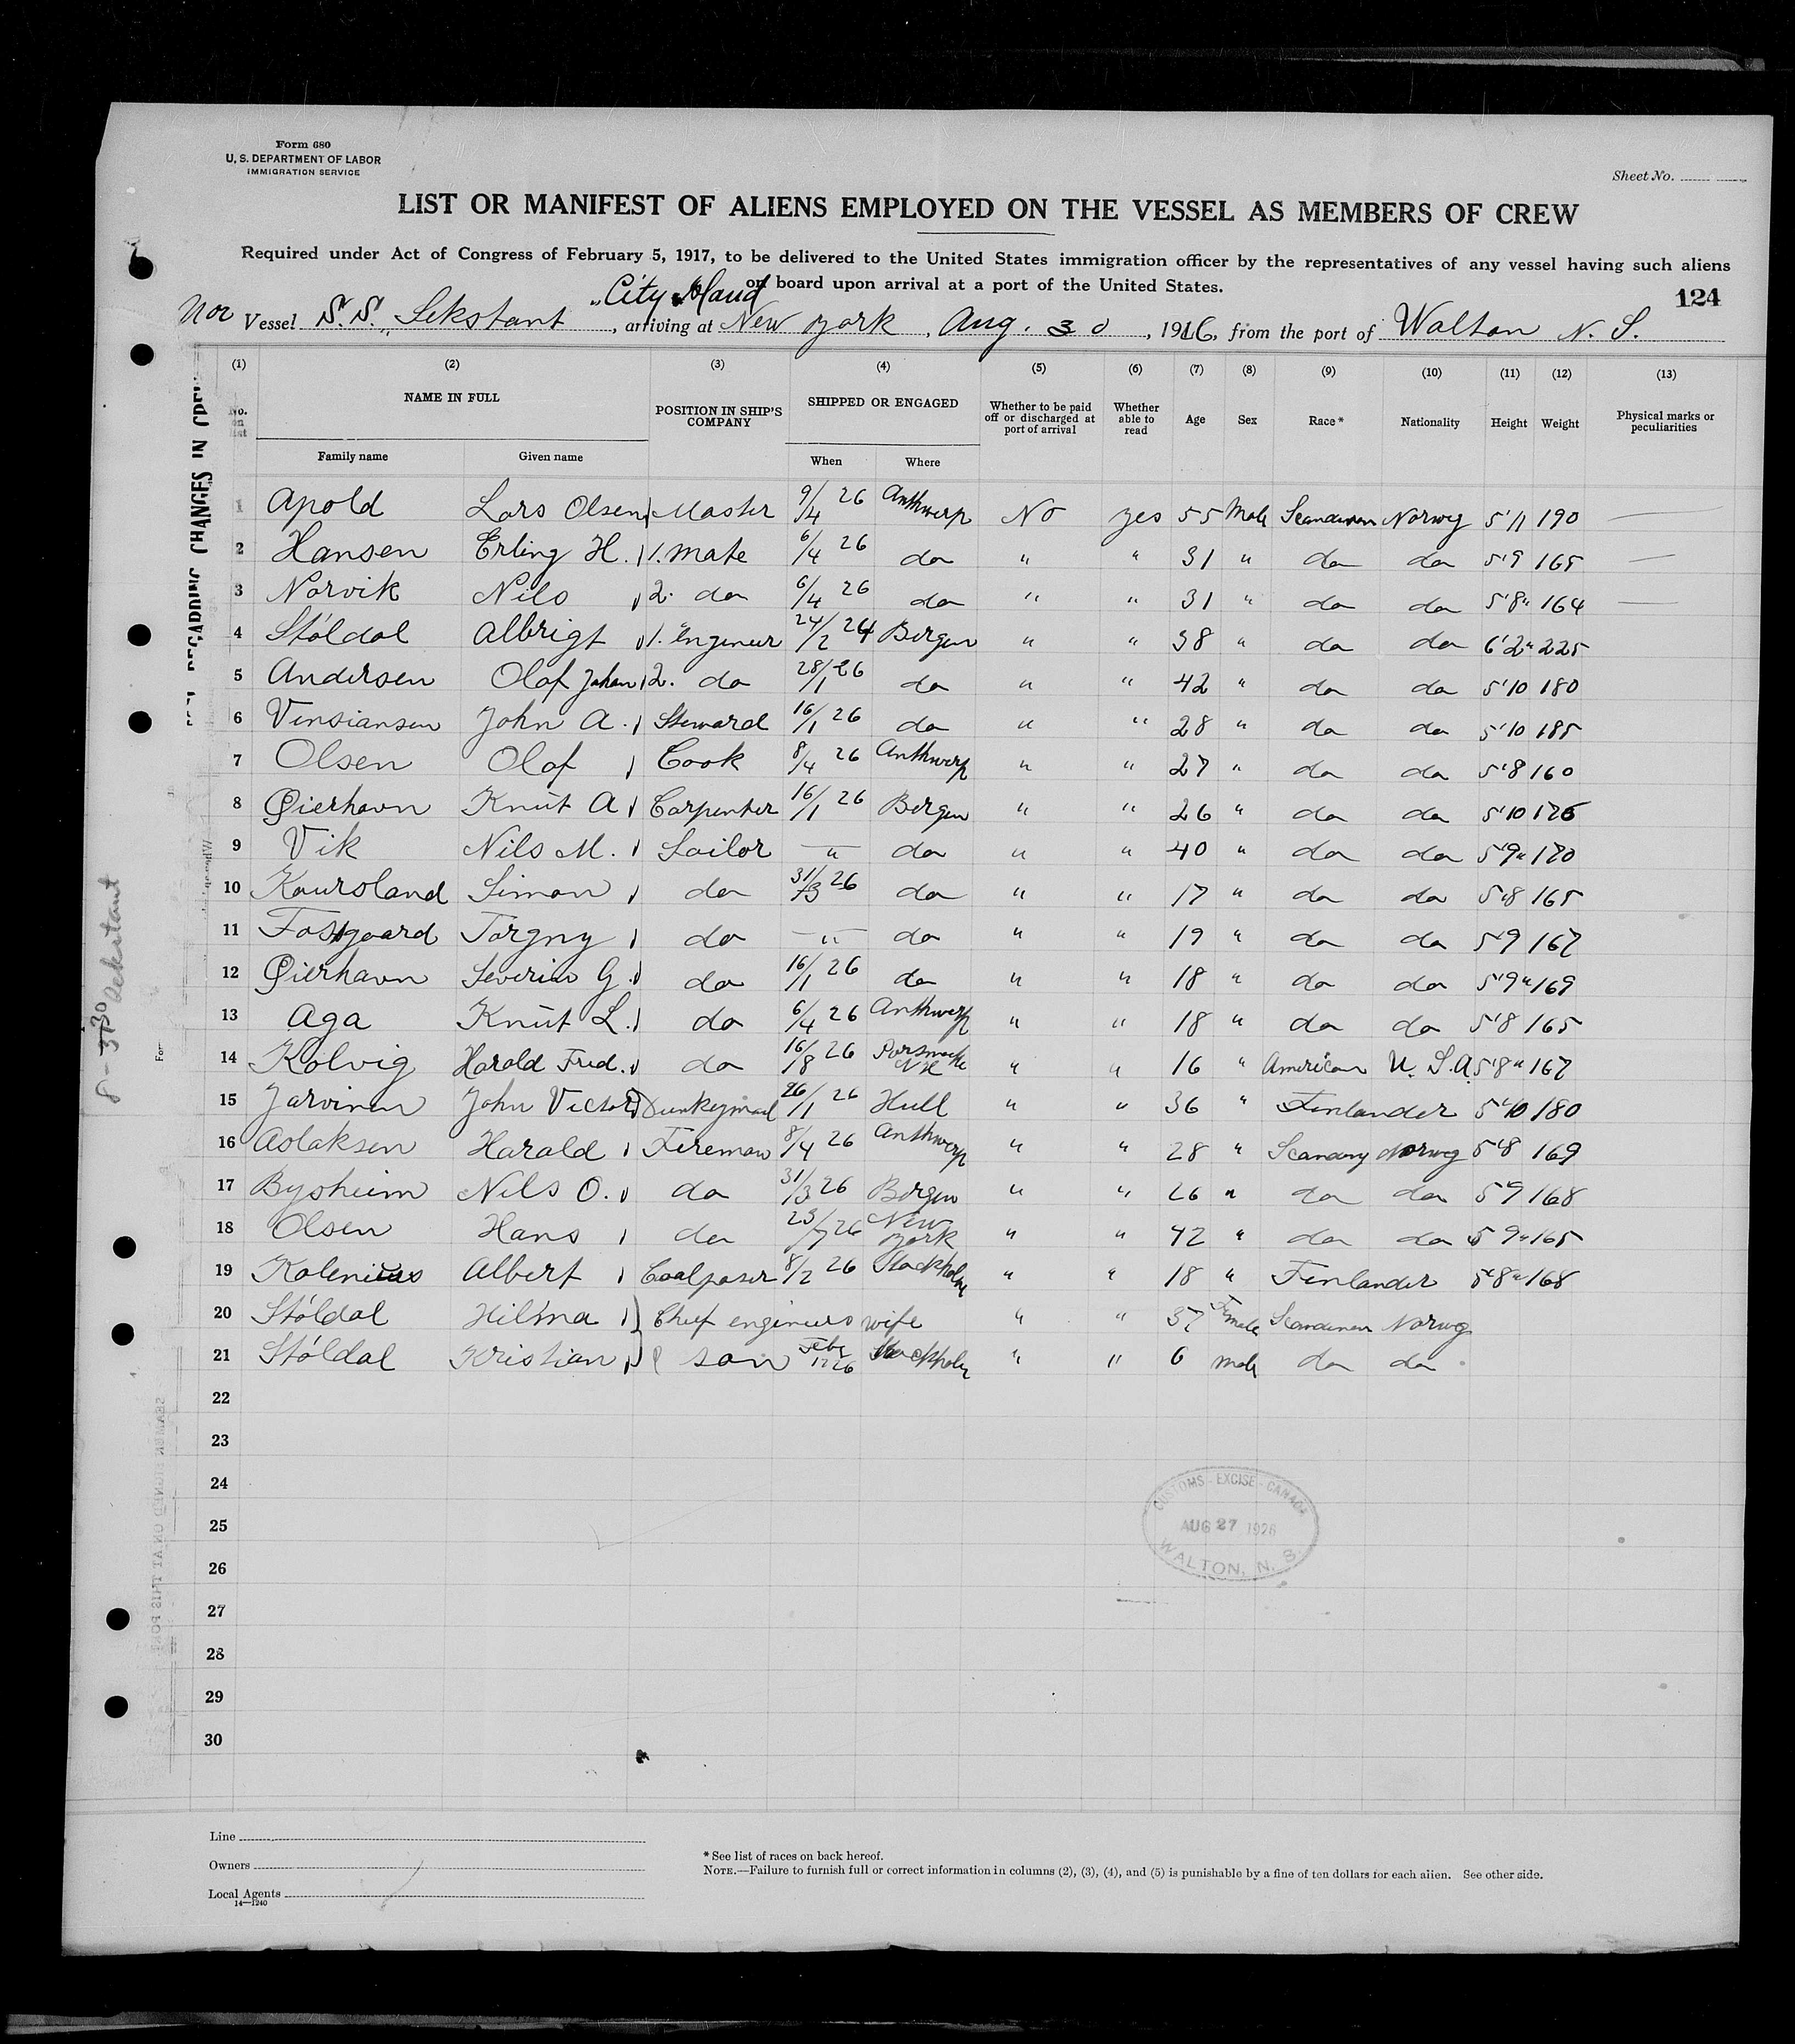 Form 680
U. S. DEPARTMENT OF LABOR
IMMIGRATION SERVICE
Sheet No.
LIST OR MANIFEST OF ALIENS EMPLOYED ON THE VESSEL AS MEMBERS OF CREW
Required under Act of Congress of February 5, 1917, to be delivered to the United States immigration officer by the representatives of any vessel having such aliens
on board upon arrival at a port of the United States.
124
City Island
Nor Vessel S.S. Sekstant, arriving at New York, Aug. 30, 1926, from the port of Walton N. S.
(1) (2) (3) (4) (5) (6) (7) (8) (9) (10) (11) (12) (13)
No. on list NAME IN FULL POSITION IN SHIP'S COMPANY SHIPPED OR ENGAGED Whether to be paid off or discharged at port of arrival Whether able to read Age Sex Race* Nationality Height Weight Physical marks or peculiarities
Family name Given name When Where
1 Apold Lars Olsen Master 9/4 26 Anthwerp No yes 55 Male Scandinavn Norweg 5'11 190 —
2 Hansen Erling H. 1. Mate 6/4 26 do " " 31 " do do 5'9 165 —
3 Norvik Nils 2. do 6/4 26 do " " 31 " do do 5'8" 164 —
4 Stóldal Albrigt 1. Engineer 24/2 24 Bergen " " 38 " do do 6'2" 225
5 Andersen Olaf Johan 2. do 28/1 26 do " " 42 " do do 5'10 180
6 Vinsiansen John A. Steward 16/1 26 do " " 28 " do do 5'10 185
7 Olsen Olaf Cook 8/4 26 Anthwerp " " 27 " do do 5'8 160
8 Øierhavn Knut A Carpenter 16/1 26 Bergen " " 26 " do do 5'10 176
9 Vik Nils M. Sailor — " — do " " 40 " do do 5'9" 170
10 Kaursland Simon do 31/3 26 do " " 17 " do do 5'8 165
11 Torgny do — " — do " " 19 " do do 5'9 167
12 Øierhavn Severin G. do 16/1 26 do " " 18 " do do 5'9" 169
13 Aga Knut L. do 6/4 26 Anthwerp " " 18 " do do 5'8 165
14 Kolvig Harald Fred. do 16/8 26 NH " " 16 " American U. S. A. 5'8" 167
15 Jarvinen John Victor Dunkeyman 26/1 26 Hull " " 36 " Finlander 5'10 180
16 Aslaksen Harald Fireman 8/4 26 Anthwerp " " 28 " Scandinv Norweg 5'8 169
17 Bysheim Nils O. do 31/3 26 Bergen " " 26 " do do 5'9 168
18 Olsen Hans do 23/7 26 New York " " 42 " do do 5'9" 165
19 Kolenius Albert Coalpaser 8/2 26 Stockholm " " 18 " Finlander 5'8" 168
20 Stóldal Hilma Chief engineers wife " " 37 Female Scandinavn Norweg
21 Stóldal Kristian son Feby 1726 Stockholm " " 6 male do do
22
23
24
25
26
27
28
29
30
CUSTOMS - EXCISE - CANADA
AUG 27 1926
WALTON, N. S.
REGARDING CHANGES IN CREW
8-30 Sekstant
SEAMEN SIGNED ON AT THIS PORT
Line
Owners
Local Agents
14—1240
* See list of races on back hereof.
NOTE.—Failure to furnish full or correct information in columns (2), (3), (4), and (5) is punishable by a fine of ten dollars for each alien. See other side.